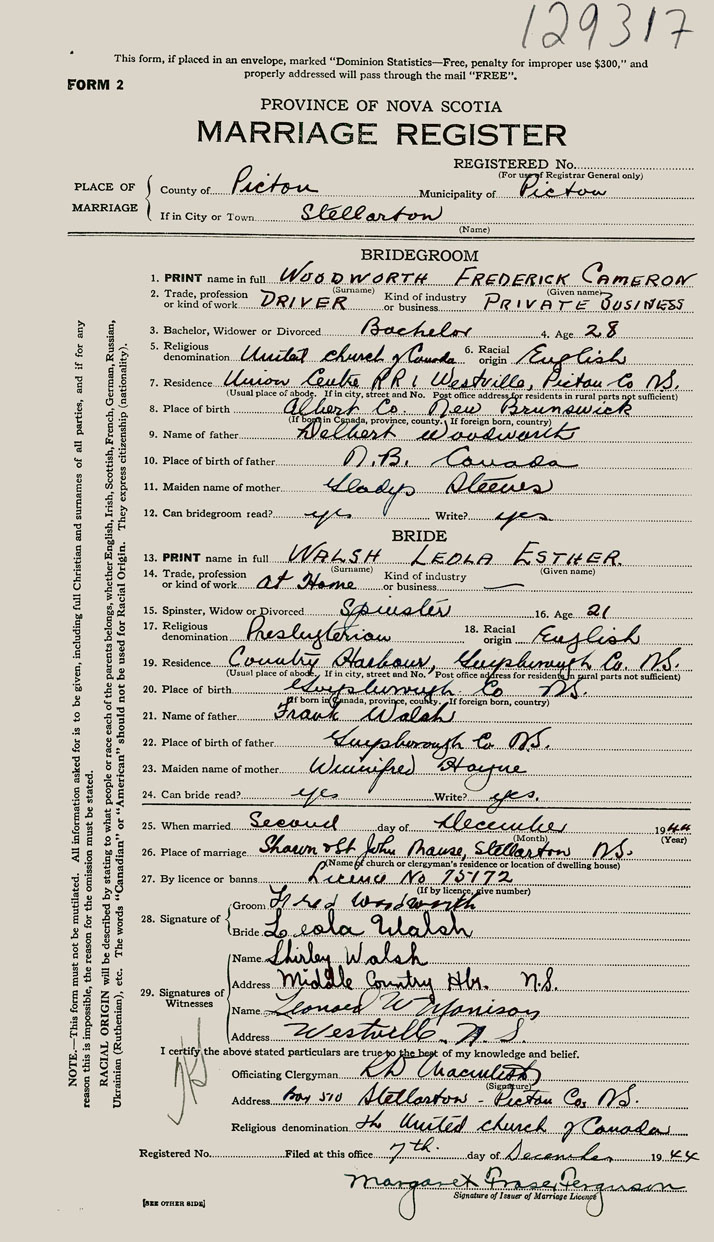 129317
This form, if placed in an envelope, marked "Dominion Statistics—Free, penalty for improper use $300," and
properly addressed will pass through the mail "FREE".
FORM 2
PROVINCE OF NOVA SCOTIA
MARRIAGE REGISTER
REGISTERED No.
(For use of Registrar General only)
PLACE OF MARRIAGE
County of Pictou Municipality of Pictou
If in City or Town Stellarton
(Name)
BRIDEGROOM
1. PRINT name in full WOODWORTH FREDERICK CAMERON
(Surname) (Given name)
2. Trade, profession or kind of work DRIVER Kind of industry or business PRIVATE BUSINESS
3. Bachelor, Widower or Divorced Bachelor 4. Age 28
5. Religious denomination United church of Canada 6. Racial origin English
7. Residence Union Centre RR 1 Westville, Pictou Co N.S.
(Usual place of abode. If in city, street and No. Post office address for residents in rural parts not sufficient)
8. Place of birth Albert Co New Brunswick
(If born in Canada, province, county. If foreign born, country)
9. Name of father Delbert Woodworth
10. Place of birth of father N.B. Canada
11. Maiden name of mother Gladys Steeves
12. Can bridegroom read? yes Write? yes
BRIDE
13. PRINT name in full WALSH LEOLA ESTHER.
(Surname) (Given name)
14. Trade, profession or kind of work at Home Kind of industry or business —
15. Spinster, Widow or Divorced Spinster 16. Age 21
17. Religious denomination Presbyterian 18. Racial origin English
19. Residence Country Harbour, Guysborough Co. N.S.
(Usual place of abode. If in city, street and No. Post office address for residents in rural parts not sufficient)
20. Place of birth Guysborough Co N.S.
(If born in Canada, province, county. If foreign born, country)
21. Name of father Frank Walsh
22. Place of birth of father Guysborough Co N.S.
23. Maiden name of mother Winnifred Hayne
24. Can bride read? yes Write? yes.
25. When married Second day of December 1944
(Month) (Year)
26. Place of marriage Sharon & St John Manse, Stellarton N.S.
(Name of church or clergyman's residence or location of dwelling house)
27. By licence or banns Licence No 75172
(If by licence, give number)
28. Signature of
Groom Fred Woodworth
Bride Leola Walsh
29. Signatures of Witnesses
Name Shirley Walsh
Address Middle Country Hbr. N.S.
Name Leonard W Morrison
Address Westville. N.S.
I certify the above stated particulars are true to the best of my knowledge and belief.
Officiating Clergyman
(Signature)
Address Box 510 Stellarton - Pictou Co, N.S.
Religious denomination The United church of Canada
Registered No. Filed at this office 7th. day of December 1944
Margaret Fraser Ferguson
Signature of Issuer of Marriage Licence
[SEE OTHER SIDE]
NOTE.—This form must not be mutilated. All information asked for is to be given, including full Christian and surnames of all parties, and if for any
reason this is impossible, the reason for the omission must be stated.
RACIAL ORIGIN will be described by stating to what people or race each of the parents belongs, whether English, Irish, Scottish, French, German, Russian,
Ukrainian (Ruthenian), etc. The words "Canadian" or "American" should not be used for Racial Origin. They express citizenship (nationality).